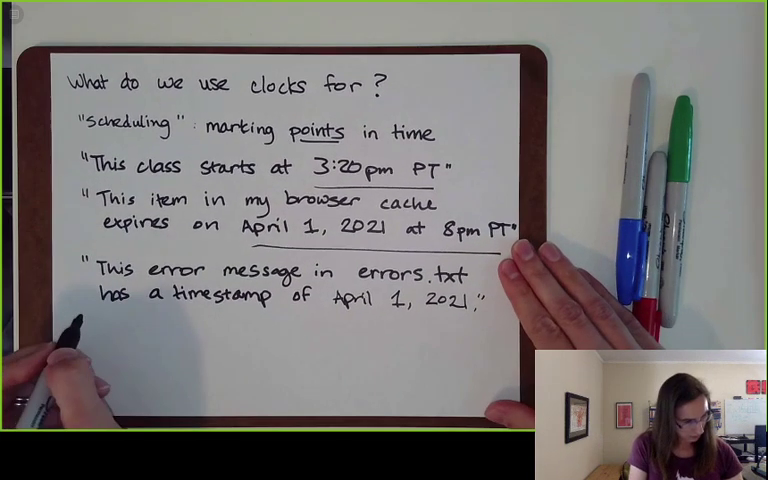 What do we use clocks for?
"scheduling": marking points in time
"This class starts at 3:20pm PT"
"This item in my browser cache
expires on April 1, 2021 at 8pm PT"
"This error message in errors.txt
has a timestamp of April 1, 2021."